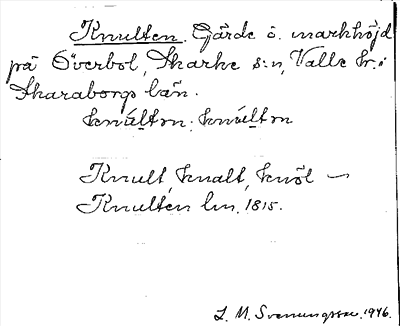 Knulten. Gärde o. markhöjd
på Överbol, Skarke s:n, Valle hr. i
Skaraborgs län.
knúltn: knúltn
Knult, knalt, knöl —
Knulten lm. 1815.
L. M. Svenungsson. 1946.